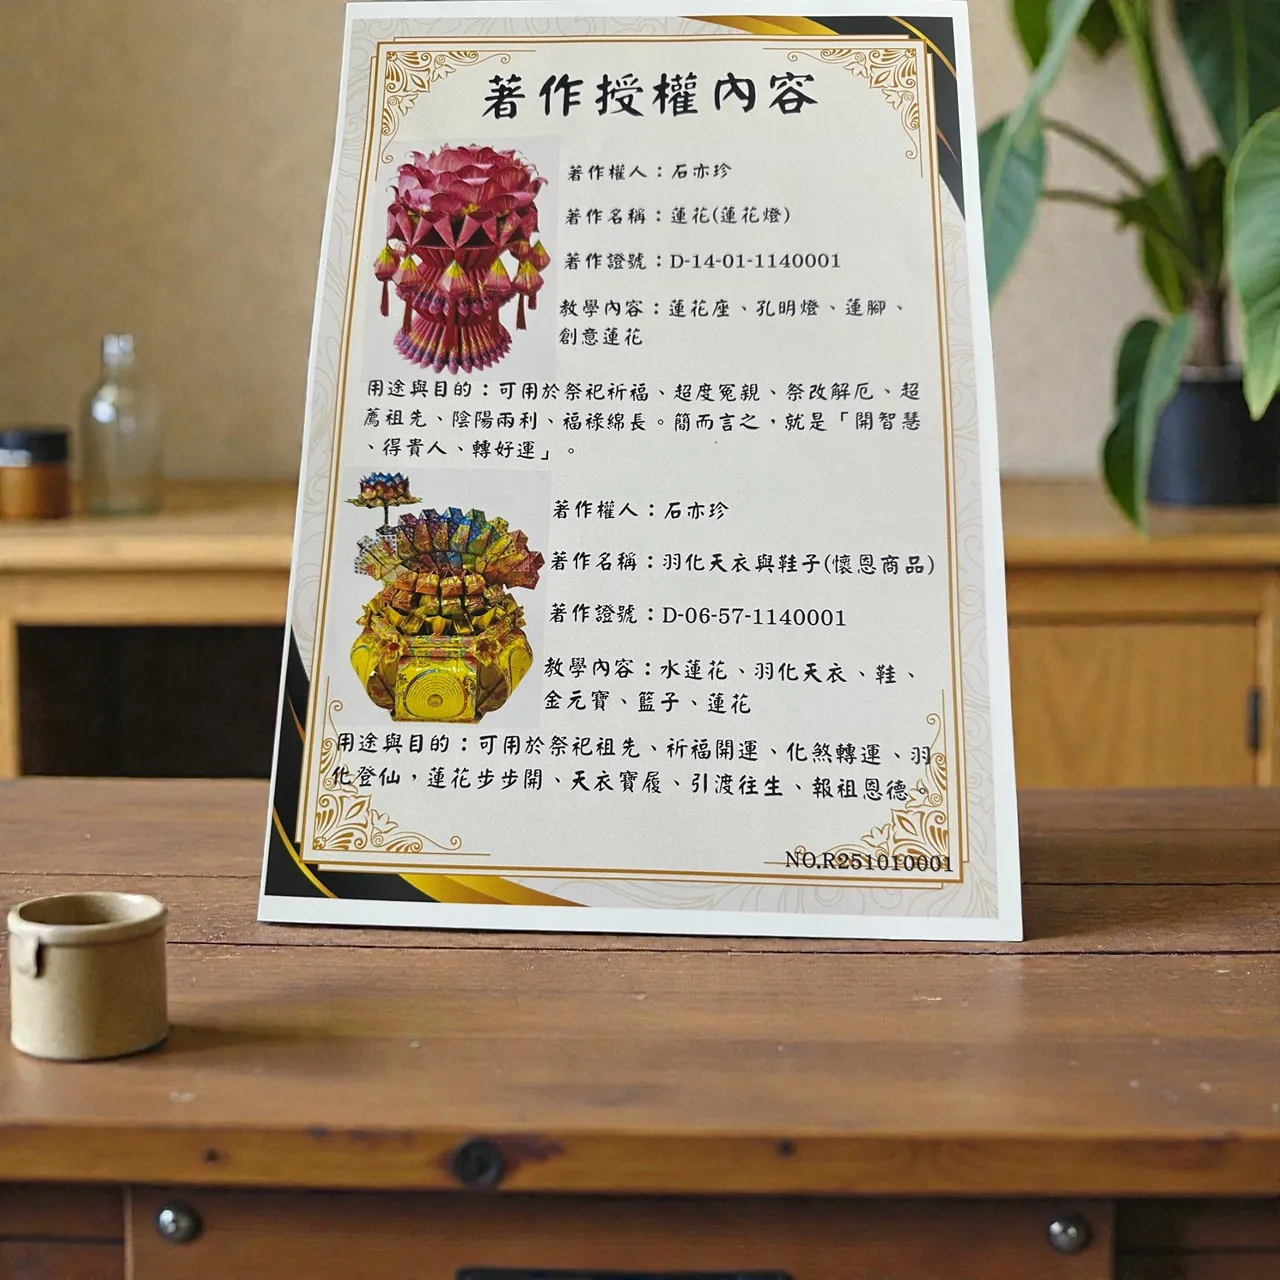 著作授權內容
著作權人：石亦珍
著作名稱：蓮花(蓮花燈)
著作證號：D-14-01-1140001
教學內容：蓮花座、孔明燈、蓮腳、
創意蓮花
用途與目的：可用於祭祀祈福、超度冤親、祭改解厄、超
薦祖先、陰陽兩利、福祿綿長。簡而言之，就是「開智慧
、得貴人、轉好運」。
著作權人：石亦珍
著作名稱：羽化天衣與鞋子(懷恩商品)
著作證號：D-06-57-1140001
教學內容：水蓮花、羽化天衣、鞋、
金元寶、籃子、蓮花
用途與目的：可用於祭祀祖先、祈福開運、化煞轉運、羽
化登仙，蓮花步步開、天衣寶履、引渡往生、報祖恩德。
NO.R251010001